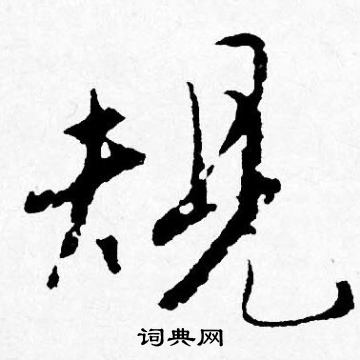 規
词典网